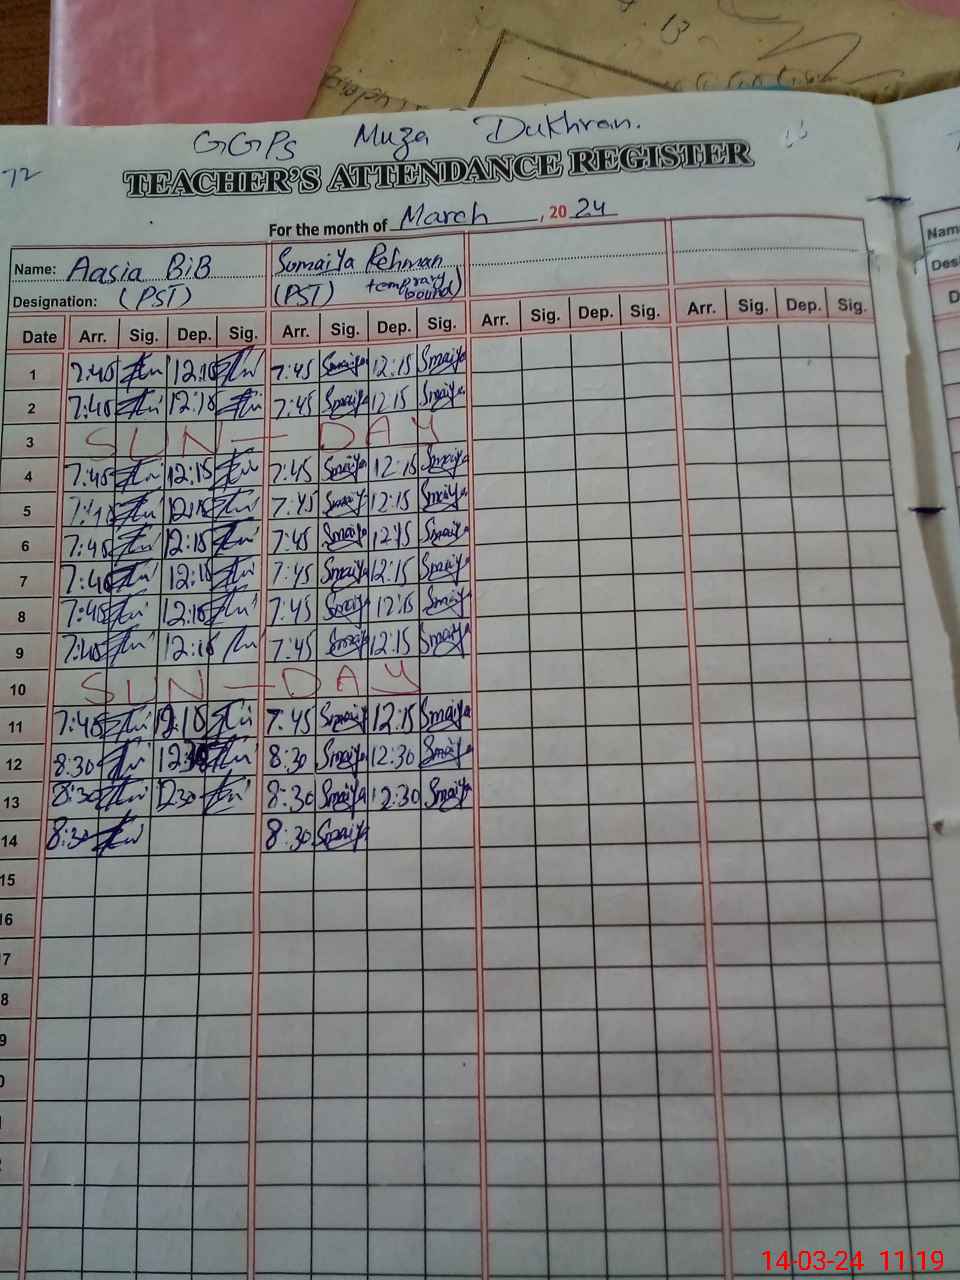 13
GGPS Muza Dukhran.
72
TEACHER'S ATTENDANCE REGISTER
For the month of March, 2024
Name: Aasia BiB Sumaiya Rehman
Designation: (PST) (PST) temprary bound)
Date Arr. Sig. Dep. Sig. Arr. Sig. Dep. Sig. Arr. Sig. Dep. Sig. Arr. Sig. Dep. Sig.
1 7:45 12:15 7:45 Smaiya 12:15 Smaiya
2 7:45 12:15 7:45 Smaiya 12:15 Smaiya
3 SUN - DAY
4 7:45 12:15 7:45 Smaiya 12:15 Smaiya
5 7:45 12:15 7:45 Smaiya 12:15 Smaiya
6 7:45 12:15 7:45 Smaiya 12:15 Smaiya
7 7:45 12:15 7:45 Smaiya 12:15 Smaiya
8 7:45 12:15 7:45 Smaiya 12:15 Smaiya
9 7:45 12:15 7:45 Smaiya 12:15 Smaiya
10 SUN - DAY
11 7:45 12:15 7:45 Smaiya 12:15 Smaiya
12 8:30 12:30 8:30 Smaiya 12:30 Smaiya
13 8:30 12:30 8:30 Smaiya 12:30 Smaiya
14 8:30 8:30 Smaiya
15
16
7
8
9
0
Nam
Des
D
14-03-24 11:19